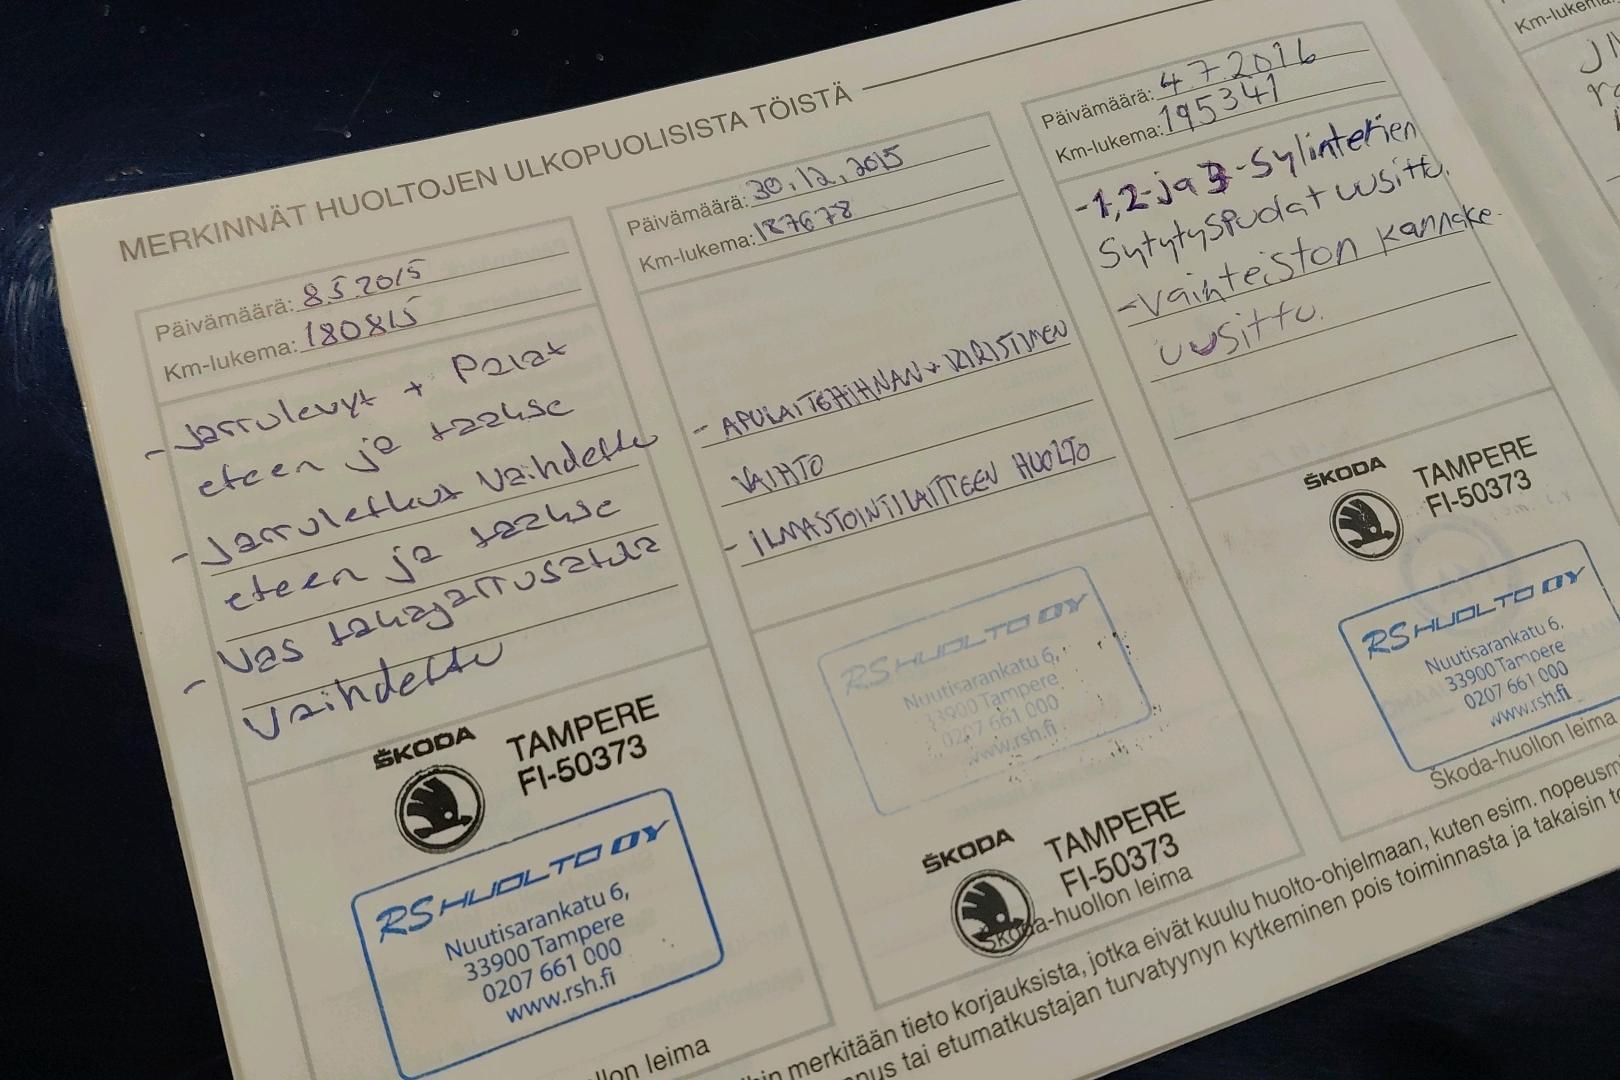 MERKINNÄT HUOLTOJEN ULKOPUOLISISTA TÖISTÄ
Päivämäärä: 8.5.2015
Km-lukema: 180815
- Jarrulevyt + Palat
eteen ja taakse
- Jarruletkut vaihdettu
eteen ja taakse
- Vas takajarrusatula
vaihdettu
ŠKODA
TAMPERE
FI-50373
RS HUOLTO OY
Nuutisarankatu 6,
33900 Tampere
0207 661 000
www.rsh.fi
llon leima
Päivämäärä: 30.12.2015
Km-lukema: 187678
- APULAITEHIHNAN + KIRISTIMEN
VAIHTO
- ILMASTOINTILAITTEEN HUOLTO
RS HUOLTO OY
Nuutisarankatu 6,
33900 Tampere
0207 661 000
www.rsh.fi
ŠKODA
TAMPERE
FI-50373
Škoda-huollon leima
Päivämäärä: 4.7.2016
Km-lukema: 195341
-1,2- ja 3-Sylinterien
Sytytyspuolat uusittu.
-Vaihteiston kannake
uusittu.
ŠKODA
TAMPERE
FI-50373
RS HUOLTO OY
Nuutisarankatu 6,
33900 Tampere
0207 661 000
www.rsh.fi
Škoda-huollon leima
Km-lukema:
merkitään tieto korjauksista, jotka eivät kuulu huolto-ohjelmaan, kuten esim.
tai etumatkustajan turvatyynyn kytkeminen pois toiminnasta ja takaisin